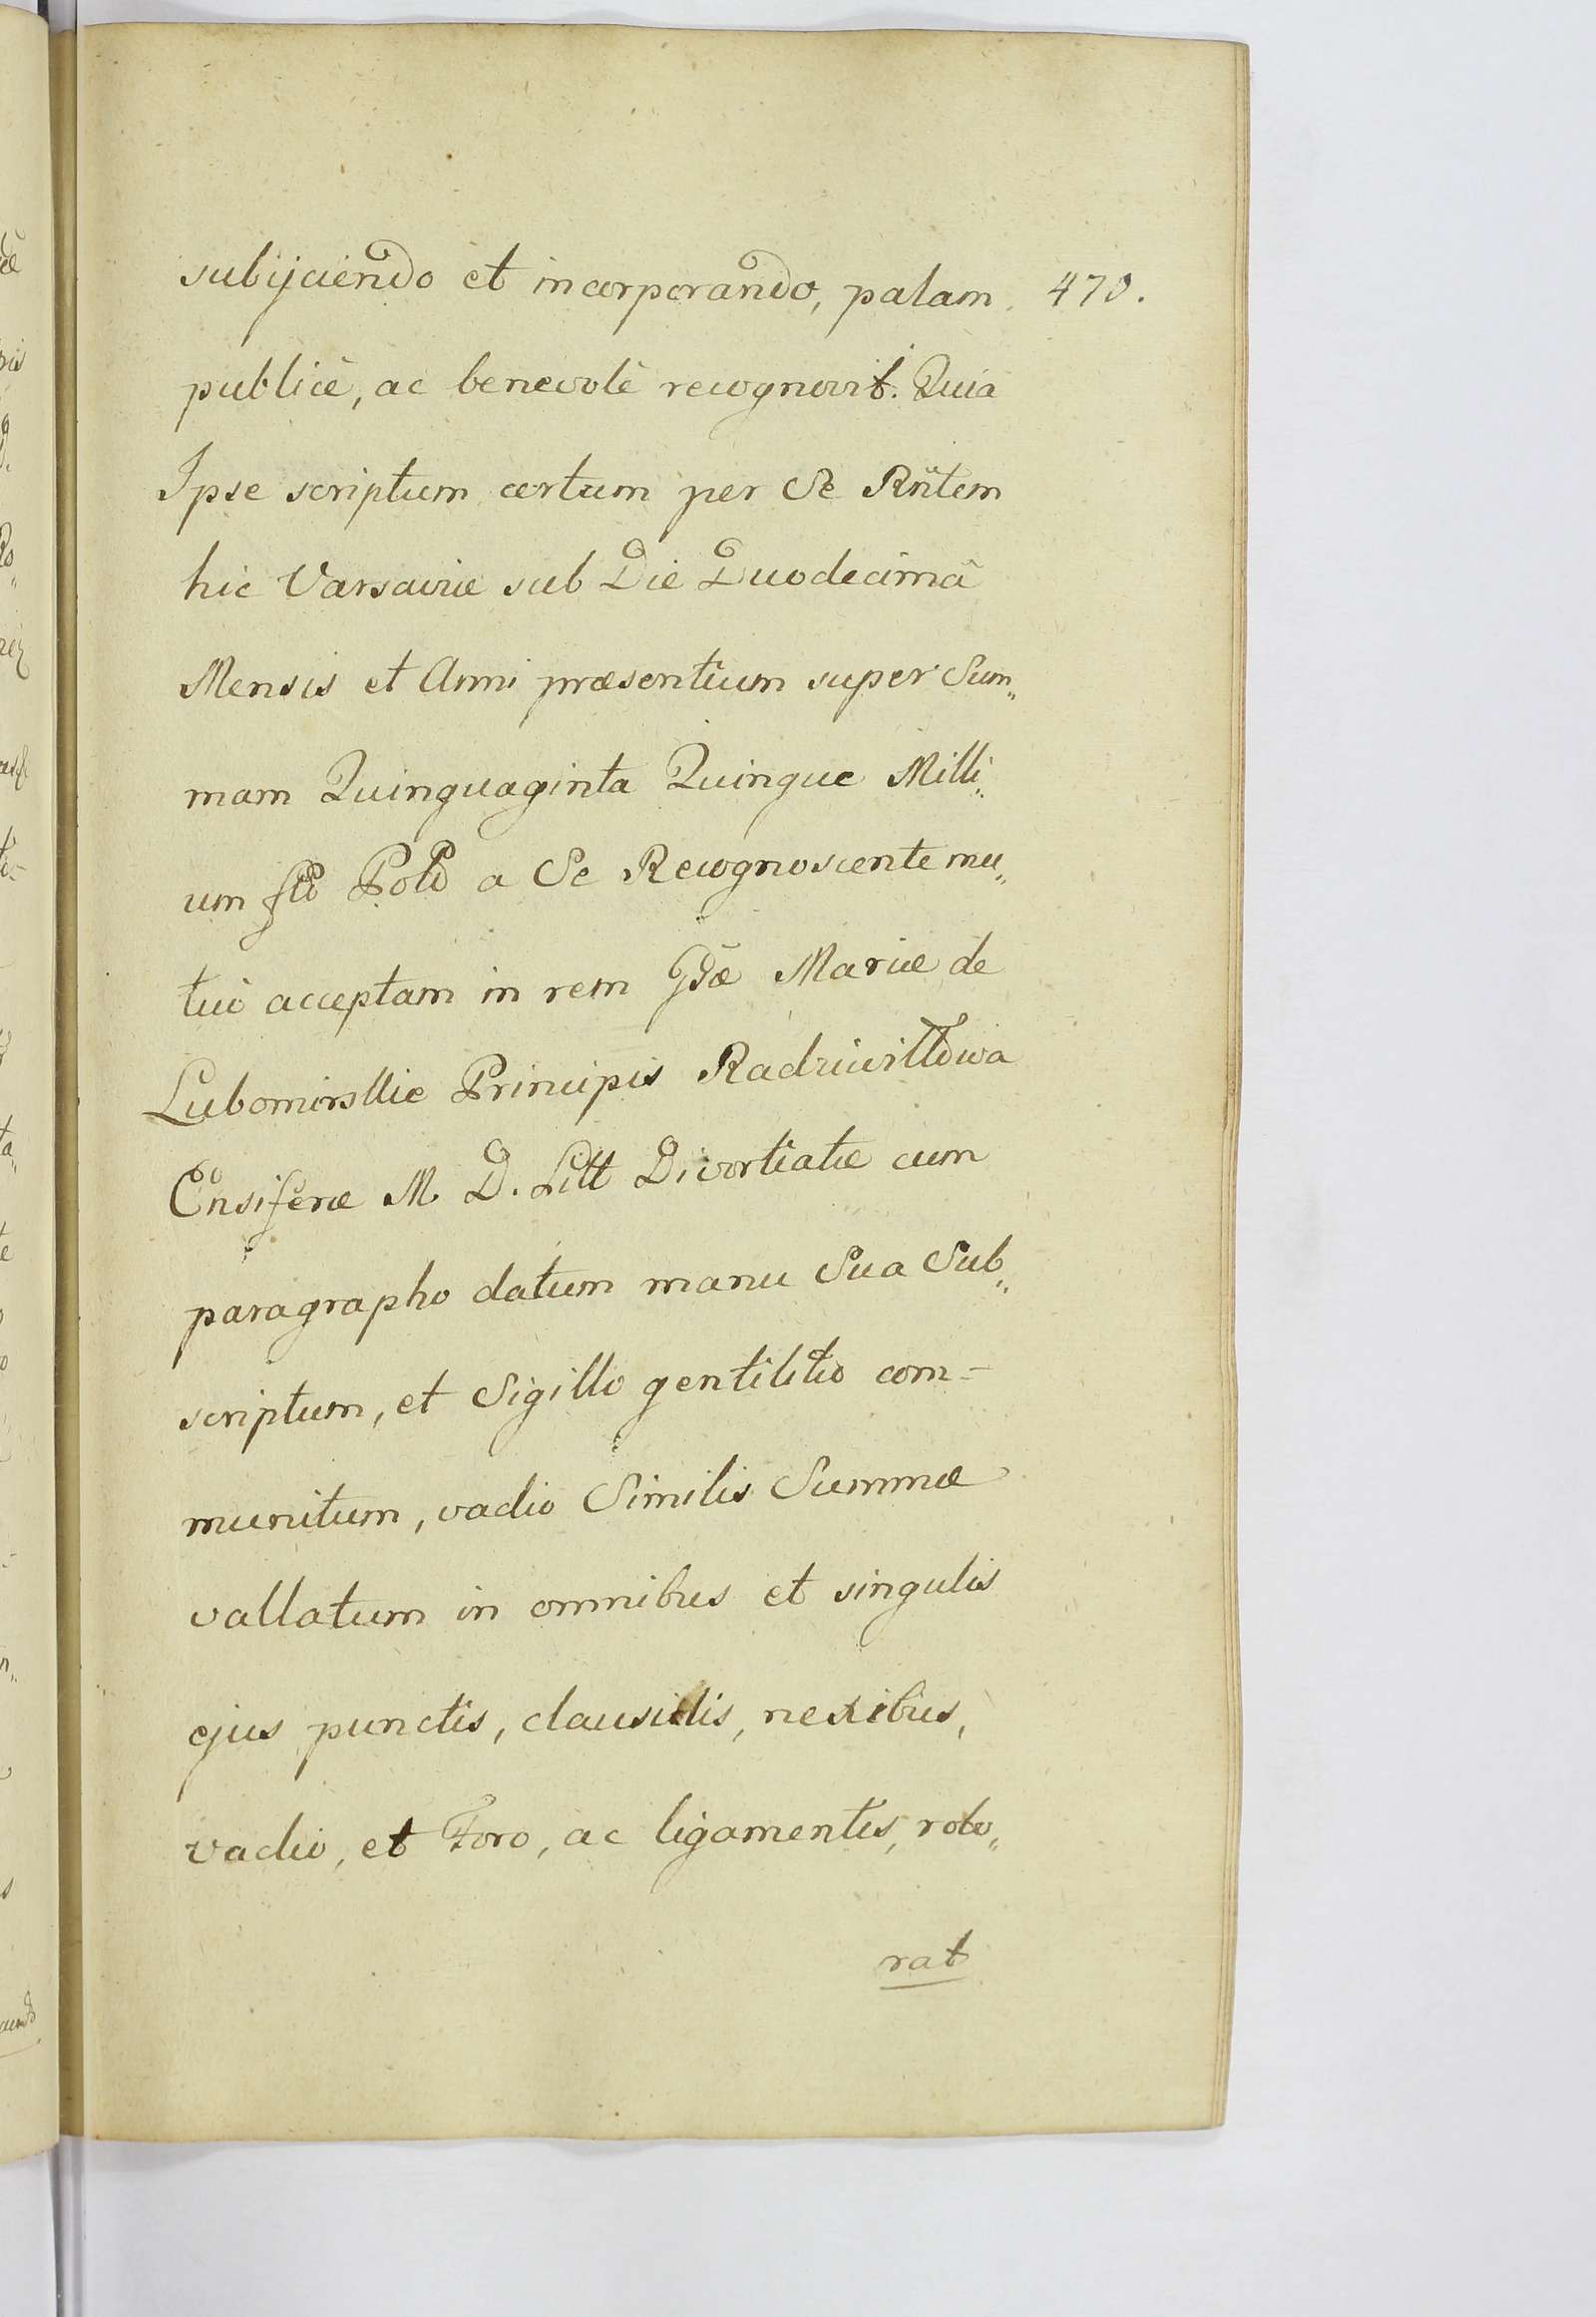 subijciendo et incorporando, palam 470.
publicè, ac benevolè recognovit. Quia
Ipse scriptum certum per Se Rñtem
hic Varsaviæ sub Die Duodecimâ
Mensis et Anni præsentium super Sum„
mam Quinquaginta Quinque Milli„
um flō Polō a Se Recognoscente mu„
tuò acceptam in rem Gđæ Mariæ de
Lubomirskie Principis Radziwiłłowa
Ensiferæ M. D. Litt Divortiatæ cum
paragrapho datum manu Sua Sub„
scriptum, et Sigillo gentilitio com=
munitum, vadio Similis Summæ
vallatum in omnibus et singulis
ejus punctis, clausulis, nexibus,
vadio, et Foro, ac ligamentis, robo„
rat